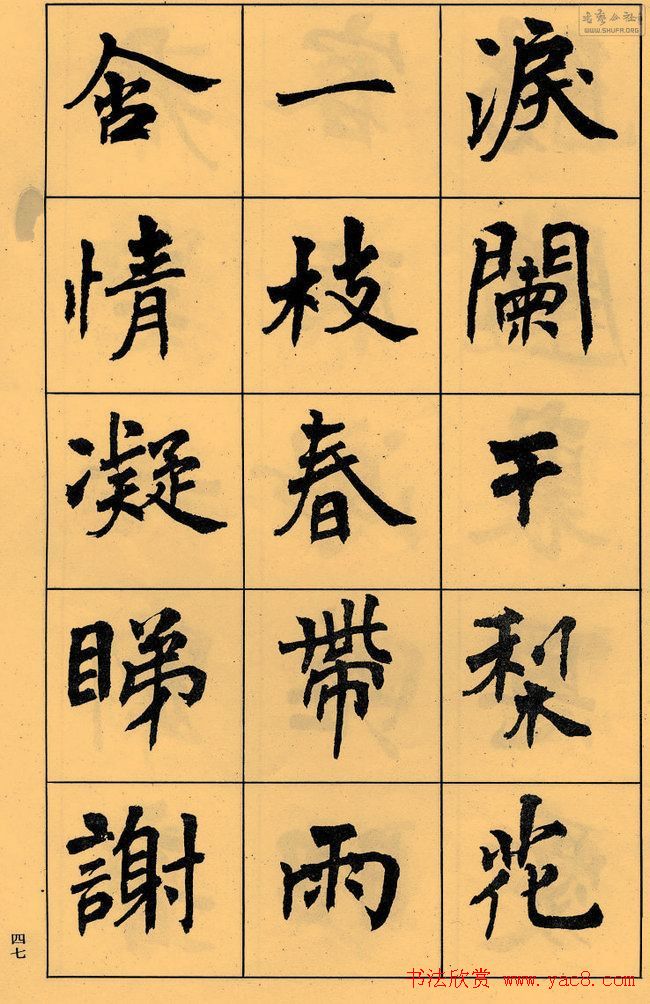 淚闌干梨花
一枝春帶雨
含情凝睇謝
四七
WWW.SHUFA.ORG
书法欣赏 www.yac8.com